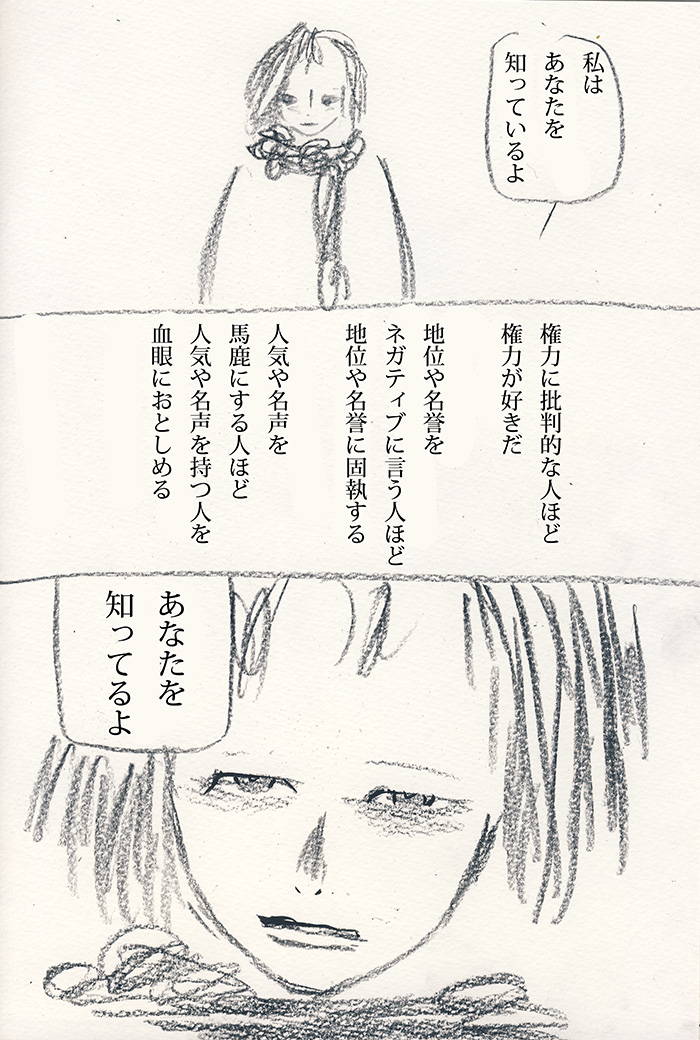 私は
あなたを
知っているよ
権力に批判的な人ほど
権力が好きだ
地位や名誉を
ネガティブに言う人ほど
地位や名誉に固執する
人気や名声を
馬鹿にする人ほど
人気や名声を持つ人を
血眼におとしめる
あなたを
知ってるよ